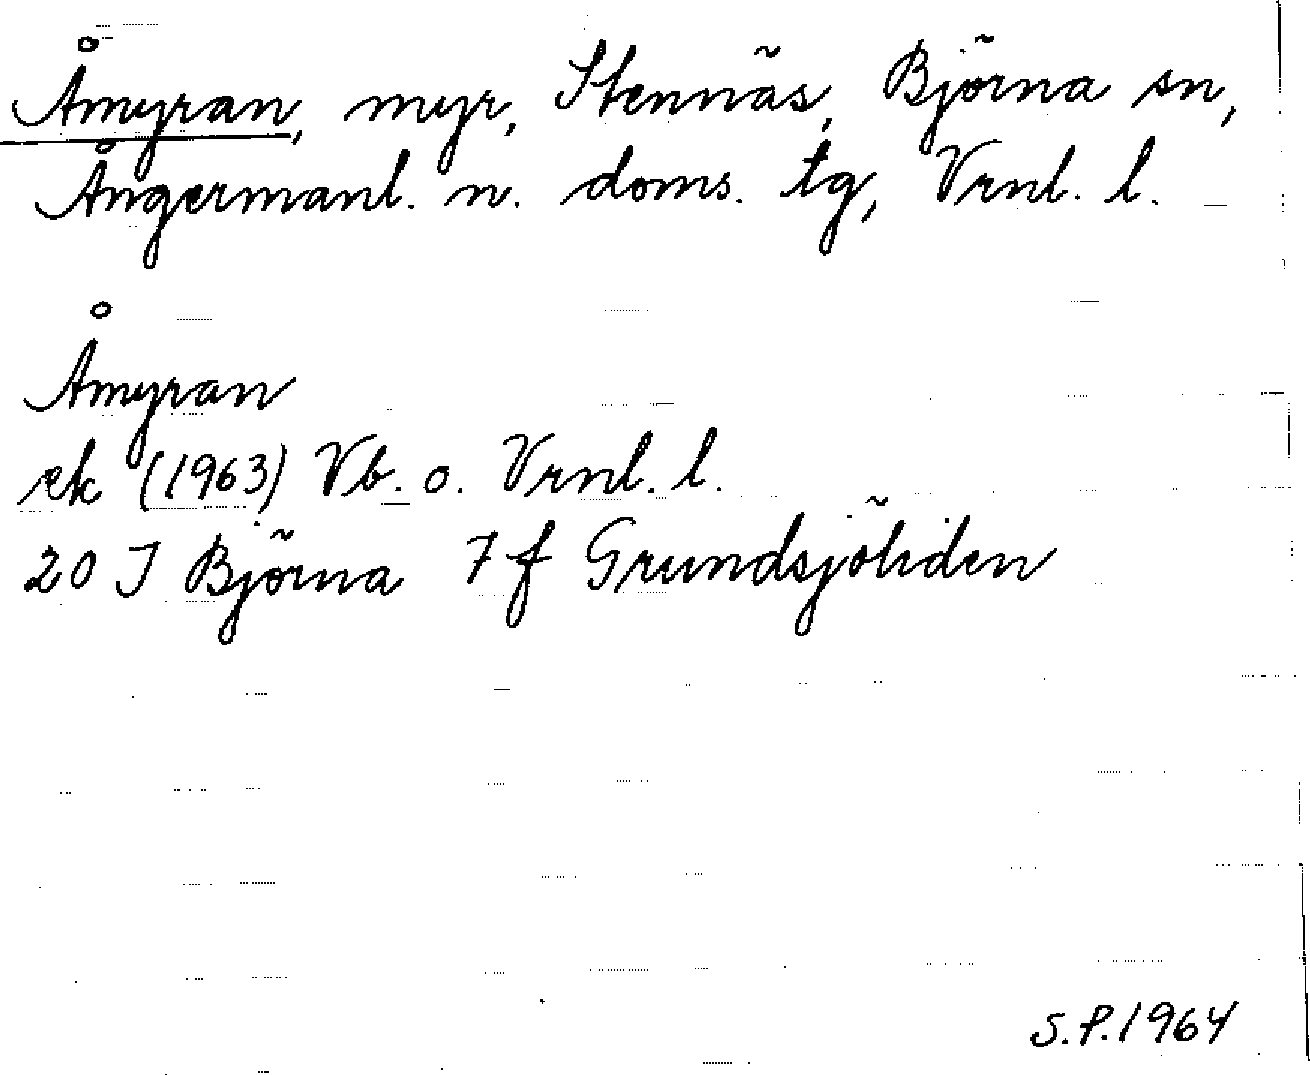 Åmyran, myr, Stennäs, Björna sn,
Ångermanl. n. doms. tg, Vrnl. l.
Åmyran
ek (1963) Vb. o. Vrnl. l.
20 J Björna 7 f Grundsjöliden
S.P. 1964